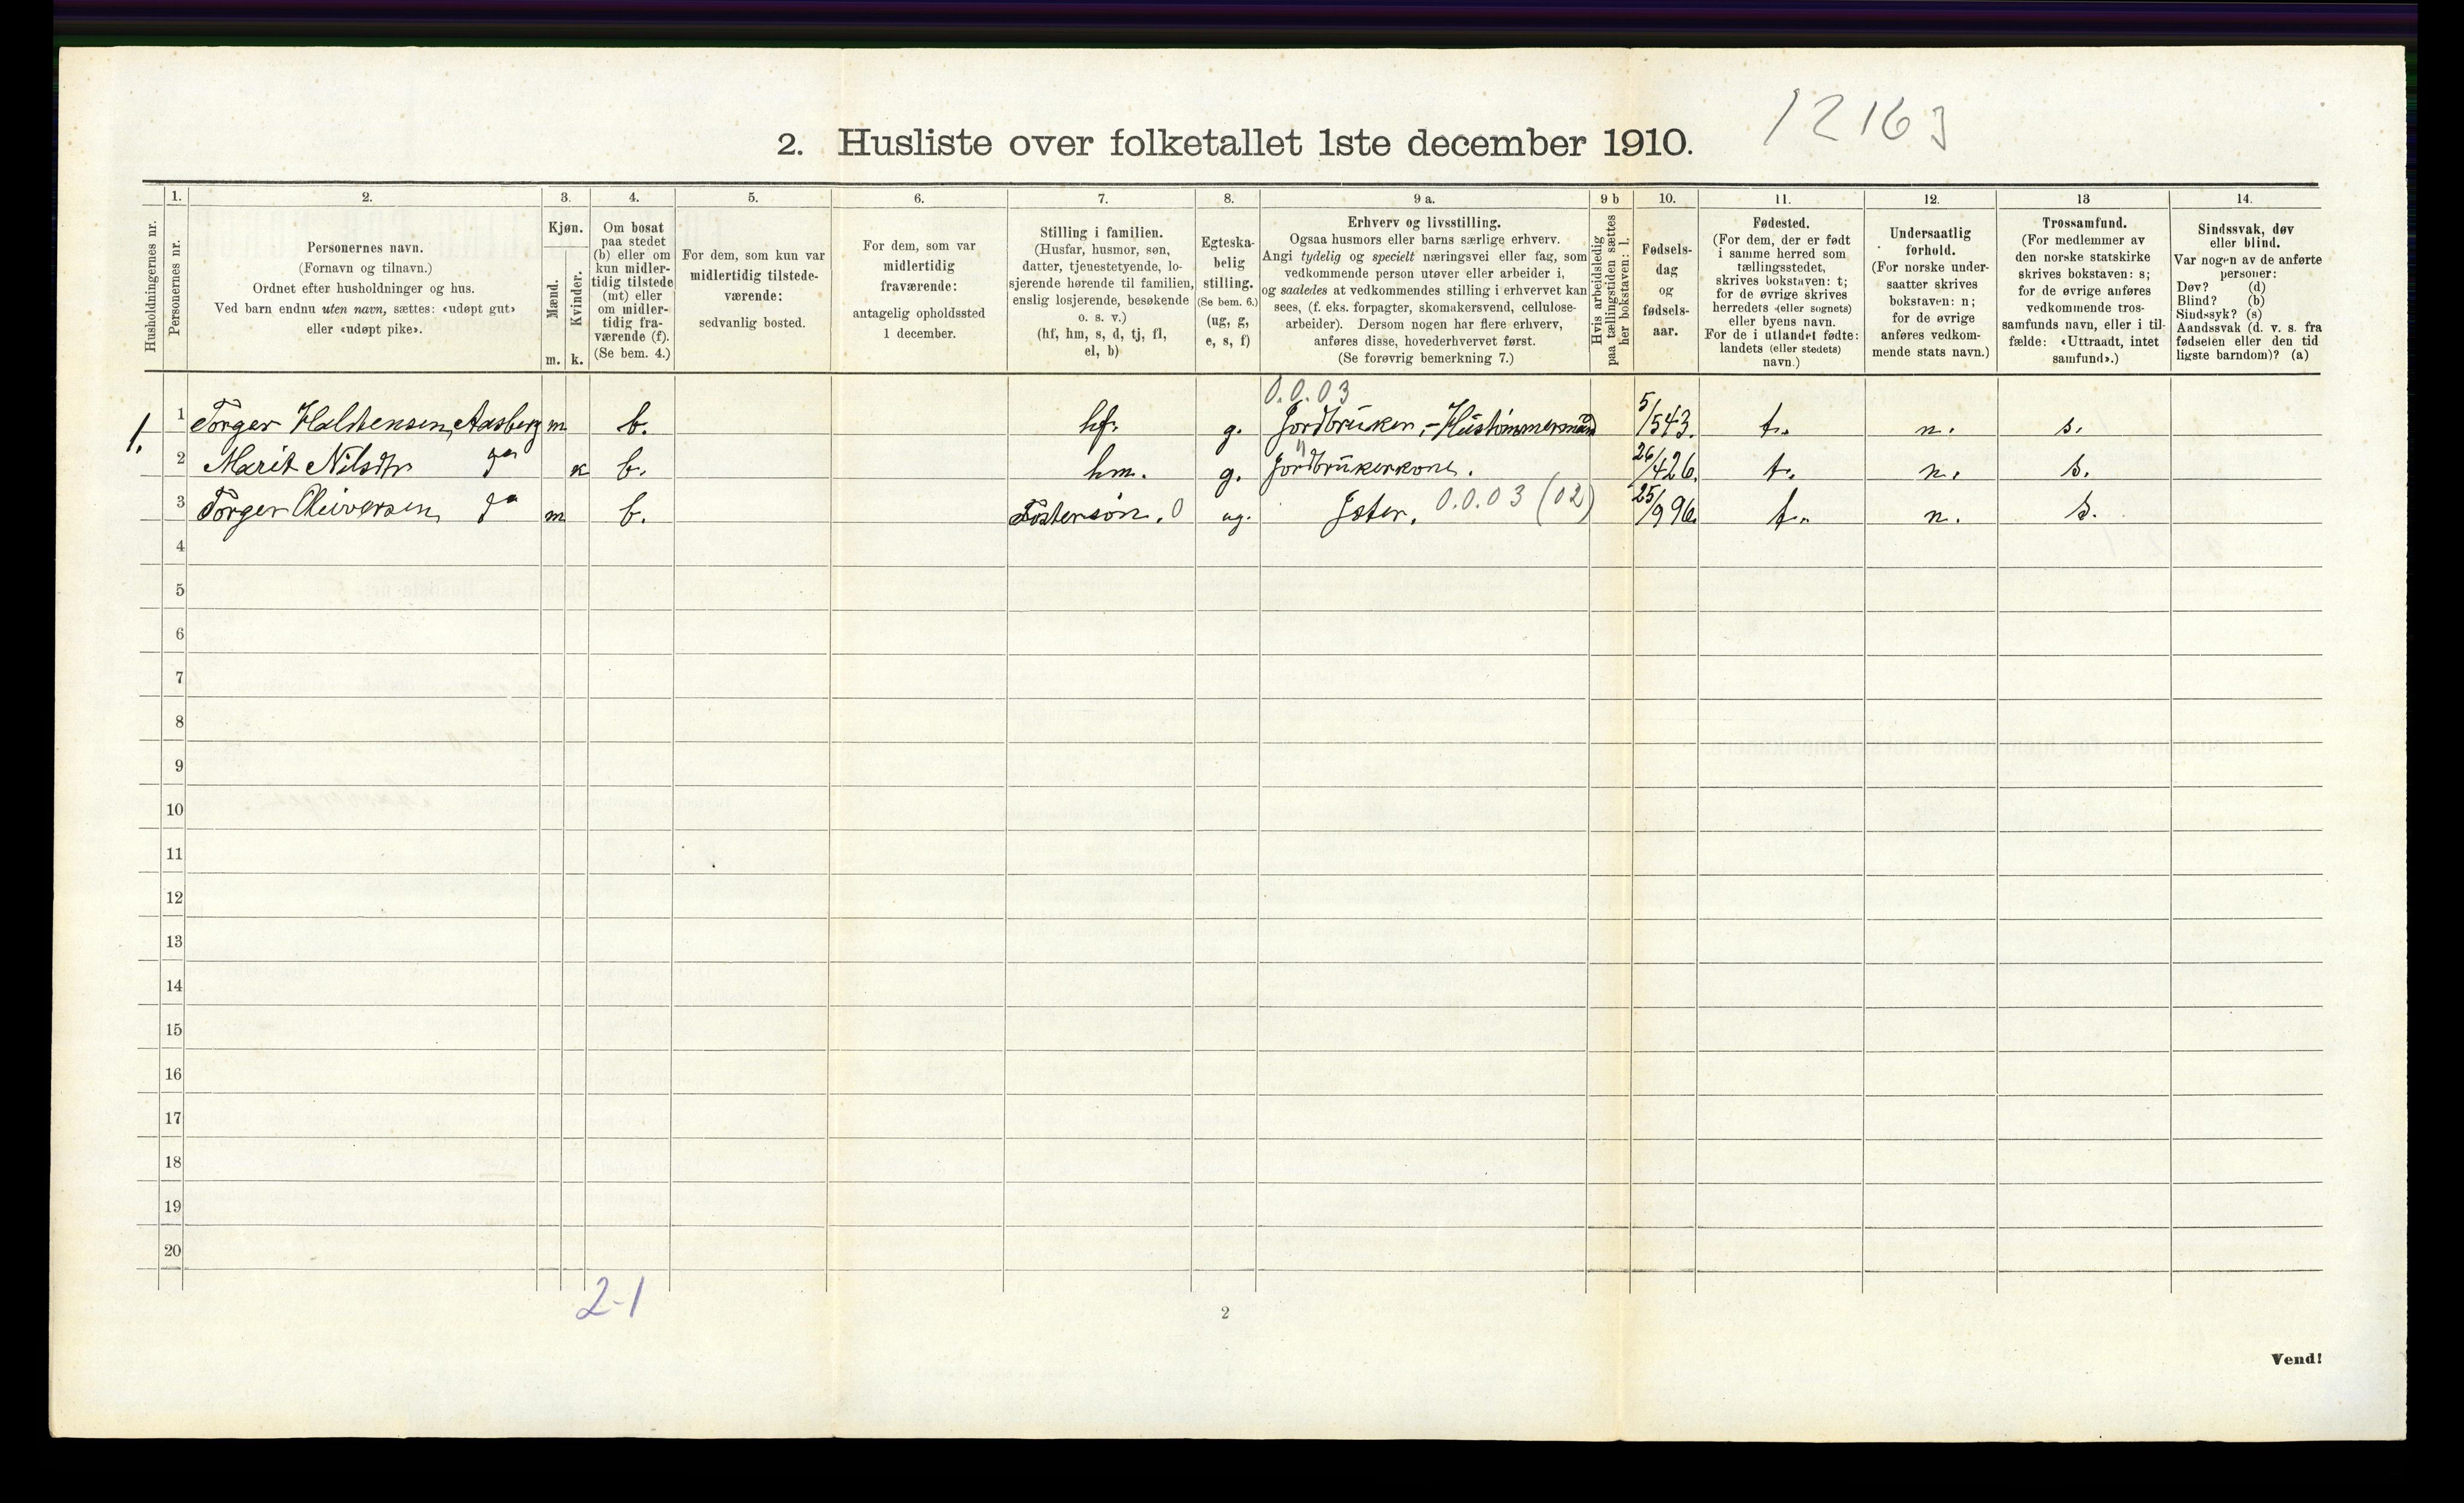 12163
2. Husliste over folketallet 1ste december 1910.
Husholdningernes nr.
1.
Personernes nr.
2.
Personernes navn.
(Fornavn og tilnavn.)
Ordnet efter husholdninger og hus.
Ved barn endnu uten navn, sættes: «udøpt gut»
eller «udøpt pike».
3.
Kjøn.
Mænd.
m.
Kvinder.
k.
4.
Om bosat
paa stedet
(b) eller om
kun midler-
tidig tilstede
(mt) eller
om midler-
tidig fra-
værende (f).
(Se bem. 4.)
5.
For dem, som kun var
midlertidig tilstede-
værende:
sedvanlig bosted.
6.
For dem, som var
midlertidig
fraværende:
antagelig opholdssted
1 december.
7.
Stilling i familien.
(Husfar, husmor, søn,
datter, tjenestetyende, lo-
sjerende hørende til familien,
enslig losjerende, besøkende
o. s. v.)
(hf, hm, s, d, tj, fl,
el, b)
8.
Egteska-
belig
stilling.
(Se bem. 6.)
(ug, g,
e, s, f)
9 a.
Erhverv og livsstilling.
Ogsaa husmors eller barns særlige erhverv.
Angi tydelig og specielt næringsvei eller fag, som
vedkommende person utøver eller arbeider i,
og saaledes at vedkommendes stilling i erhvervet kan
sees, (f. eks. forpagter, skomakersvend, cellulose-
arbeider). Dersom nogen har flere erhverv,
anføres disse, hovederhvervet først.
(Se forøvrig bemerkning 7.)
9 b
Hvis arbeidsledig
paa tællingstiden sættes
her bokstaven: l.
10.
Fødsels-
dag
og
fødsels-
aar.
11.
Fødested.
(For dem, der er født
i samme herred som
tællingsstedet,
skrives bokstaven: t;
for de øvrige skrives
herredets (eller sognets)
eller byens navn.
For de i utlandet fødte:
landets (eller stedets)
navn.)
12.
Undersaatlig
forhold.
(For norske under-
saatter skrives
bokstaven: n;
for de øvrige
anføres vedkom-
mende stats navn.)
13
Trossamfund.
(For medlemmer av
den norske statskirke
skrives bokstaven: s;
for de øvrige anføres
vedkommende tros-
samfunds navn, eller i til-
fælde: «Uttraadt, intet
samfund».)
14.
Sindssvak, døv
eller blind.
Var nogen av de anførte
personer:
Døv? (d)
Blind? (b)
Sindssyk? (s)
Aandssvak (d. v. s. fra
fødselen eller den tid
ligste barndom)? (a)
0.0.03
1. 1 Torger Halstensen, Aasberg m b. hf. g. Jordbruker,- Hustømmermand 5/5 43. t. n. s.
2 Marit Nilsdtr do k b. hm. g. Jordbrukerkone. 26/4 26. t. n. s.
3 Torger Ueiversen do m b. Fosterson. 0 ug. Jster. 0.0.03 (02) 25/9 96. t. n. s.
4
5
6
7
8
9
10
11
12
13
14
15
16
17
18
19
20
2-1
2
Vend!